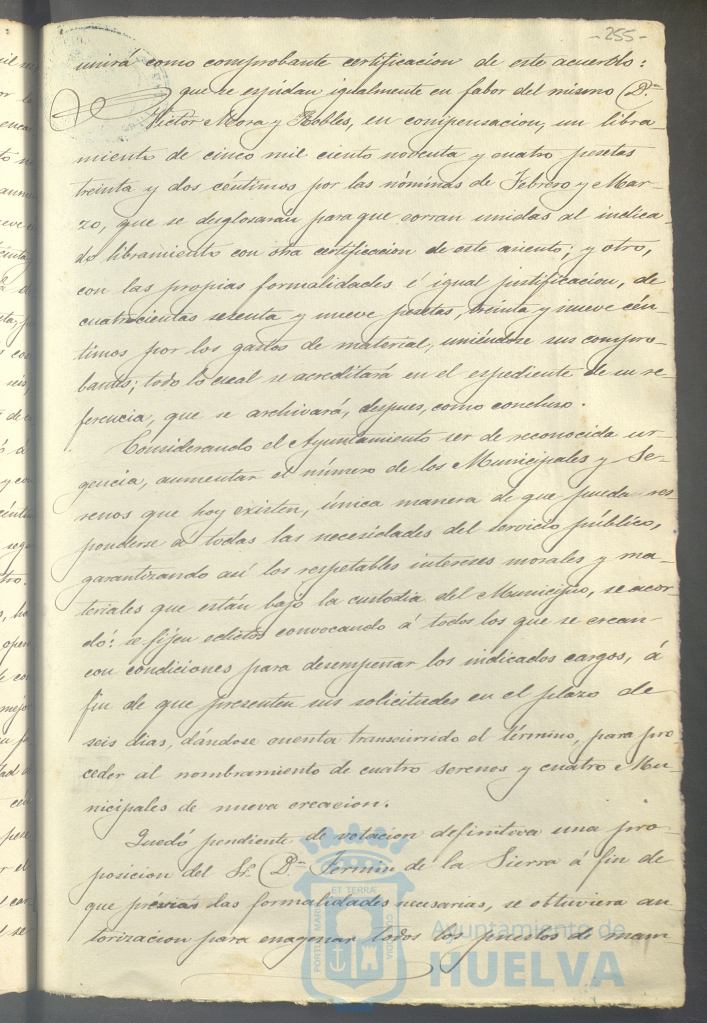 -255-
unirá como comprobante certificacion de este acuerdo:
que se espidan igualmente en fabor del mismo D.n
Victor Mora y Robles, en compensacion, un libra-
miento de cinco mil ciento noventa y cuatro pesetas
treinta y dos céntimos por las nóminas de Febrero y Mar-
zo, que se desglosarán para que corran unidas al indica-
do libramiento con otra certificacion de este asiento; y otro,
con las propias formalidades é igual justificacion, de
cuatrocientas sesenta y nueve pesetas, treinta y nueve cén-
timos por los gastos de material, uniéndose sus compro-
bantes; todo lo cual se acreditará en el espediente de su re-
ferencia, que se archivará, despues, como concluso.
Considerando el Ayuntamiento ser de reconocida ur-
gencia, aumentar el número de los Municipales y Se-
renos que hoy existen, única manera de que pueda res
ponderse a todas las necesidades del servicio público,
garantizando así los respetables intereses morales y ma-
teriales que están bajo la custodia del Municipio, se acor-
dó: se fijen edictos convocando á todos los que se crean
con condiciones para desempeñar los indicados cargos, á
fin de que presenten sus solicitudes en el plazo de
seis dias, dándose cuenta transcurrido el término, para pro
ceder al nombramiento de cuatro serenos y cuatro Mu-
nicipales de nueva creacion.
Quedó pendiente de votacion definitiva una pro-
posicion del Sr. D.n Fermin de la Sierra á fin de
que prévias las formalidades necesarias, se obtuviera au
torizacion para enagenar todos los puestos de mam
PORTUS MARIS ET TERRAE CUSTODIA
Ayuntamiento de
HUELVA